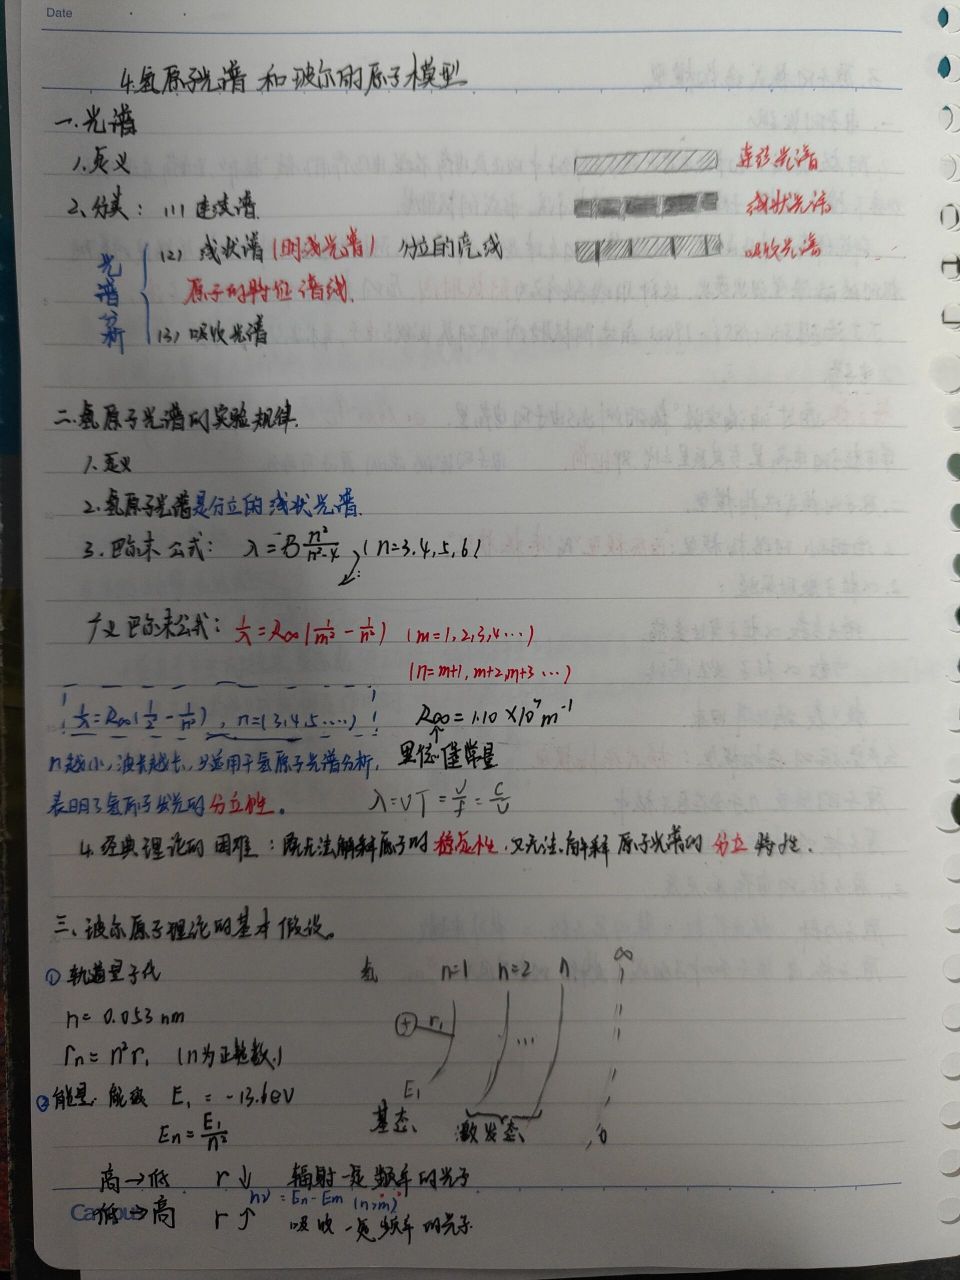 Date
4.氢原子光谱 和玻尔的原子模型
一.光谱
1.定义
连续光谱
2.分类: (1) 连续谱
线状光谱
(2) 线状谱(明线光谱) 分立的亮线
吸收光谱
原子的特征谱线.
光谱分析
(3) 吸收光谱
二.氢原子光谱的实验规律.
1.定义
2.氢原子光谱是分立的线状光谱
3.巴尔末公式: λ=B n²/(n²-4) (n=3,4,5,6)
广义巴尔末公式: 1/λ=R∞(1/m²-1/n²) (m=1,2,3,4…)
(n=m+1,m+2,m+3…)
1/λ=R∞(1/2-1/n²), n=(3,4,5……) R∞=1.10×10⁷m⁻¹
n越小,波长越长,只适用于氢原子光谱分析, 里德堡常量
表明了氢原子发光的分立性。 λ=vT=v/f=c/ν
4.经典理论的困难:既无法解释原子的稳定性,又无法解释原子光谱的分立特性.
三、玻尔原子理论的基本假设。
① 轨道量子化 氢 n=1 n=2 n ∞
r₁=0.053nm
+ r₁ …
rₙ=n²r₁ (n为正整数)
E₁
②能量.能级 E₁=-13.6eV 基态、 激发态、 0
Eₙ=E₁/n²
高→低 r↓ 辐射一定频率的光子
hν=Eₙ-Eₘ (n>m)
低→高 r↑ 吸收一定频率的光子